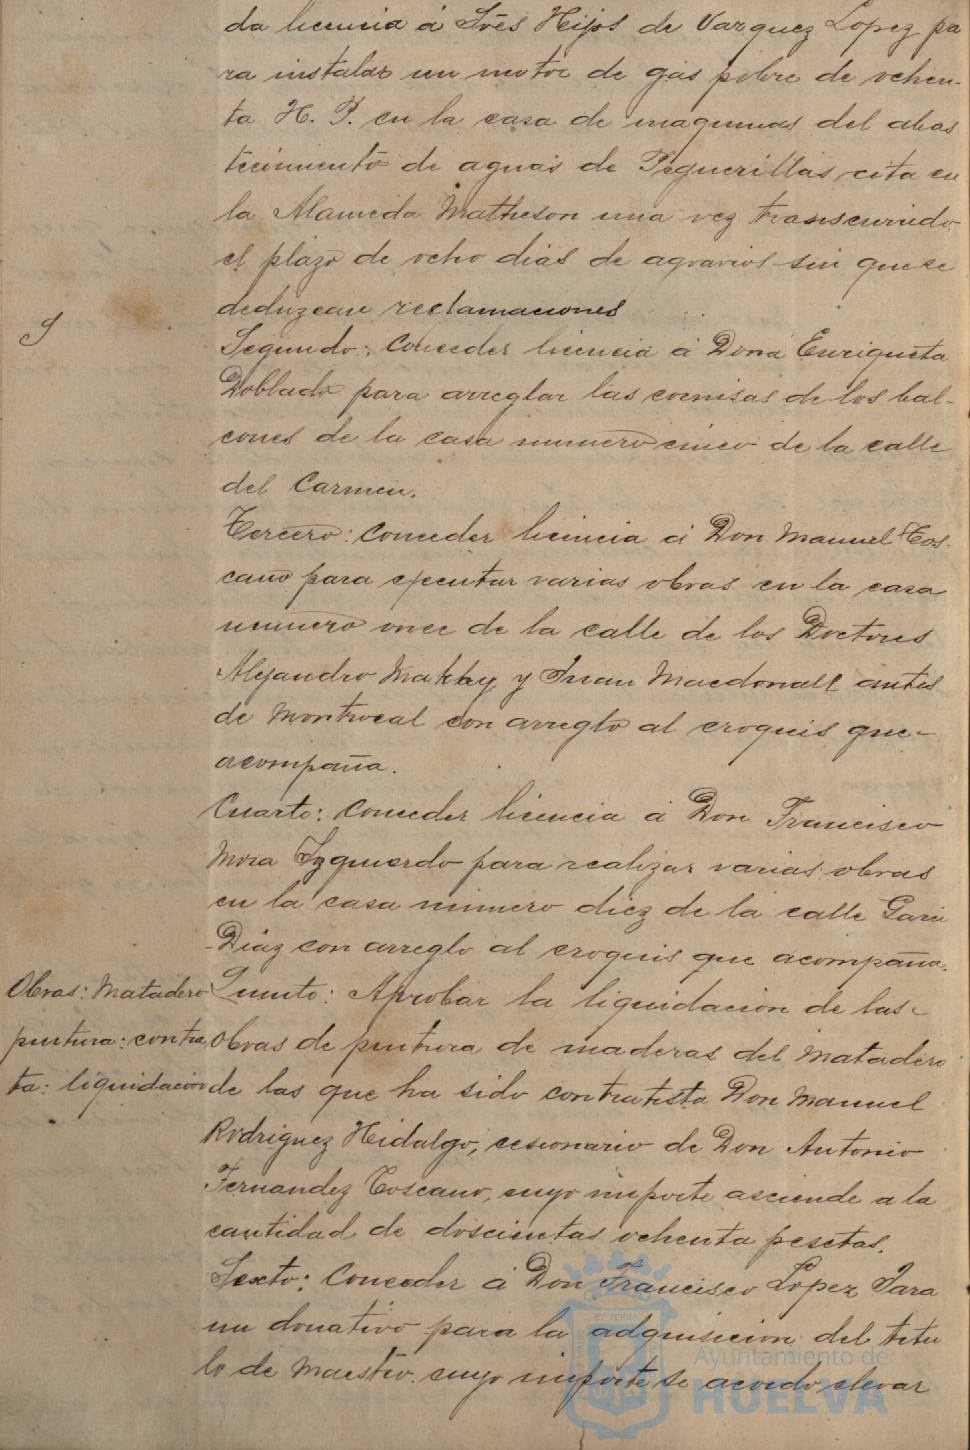 da licencia á Srēs Hijos de Vazquez Lopez pa
ra instalar un motor de gas pobre de ochen-
ta H. P. en la casa de maquinas del abas
tecimiento de aguas de Peguerillas cita en
la Alameda Matheson una vez transcurrido
el plazo de ocho dias de agravios sin que se
deduzcan reclamaciones
Segundo: Conceder licencia á Dona Enriqueta
Doblado para arreglar las cornisas de los bal-
cones de la casa numero cinco de la calle
del Carmen.
Tercero: Conceder licencia á Don Manuel Tos-
cano para ejecutar varias obras en la casa
numero once de la calle de los Doctores
Alejandro Makky y Juan Macdonall antes
de Montrocal con arreglo al croquis que
acompaña.
Cuarto: Conceder licencia á Don Francisco
Mora Izquierdo para realizar varias obras
en la casa numero diez de la calle Garci
Diaz con arreglo al croquis que acompaña.
Obras: Matadero
pintura: contra
ta: liquidacion
Quinto: Aprobar la liquidacion de las
obras de pintura de maderas del Matadero
de las que ha sido contratista Don Manuel
Rodriguez Hidalgo, cesionario de Don Antonio
Fernandez Toscano, cuyo importe asciende a la
cantidad de doscientas ochenta pesetas.
Sexto: Conceder á Don Francisco Lopez Jara
un donativo para la adquisicion del titu
lo de Maestro cuyo importe se acordo elevar
Ayuntamiento de
HUELVA